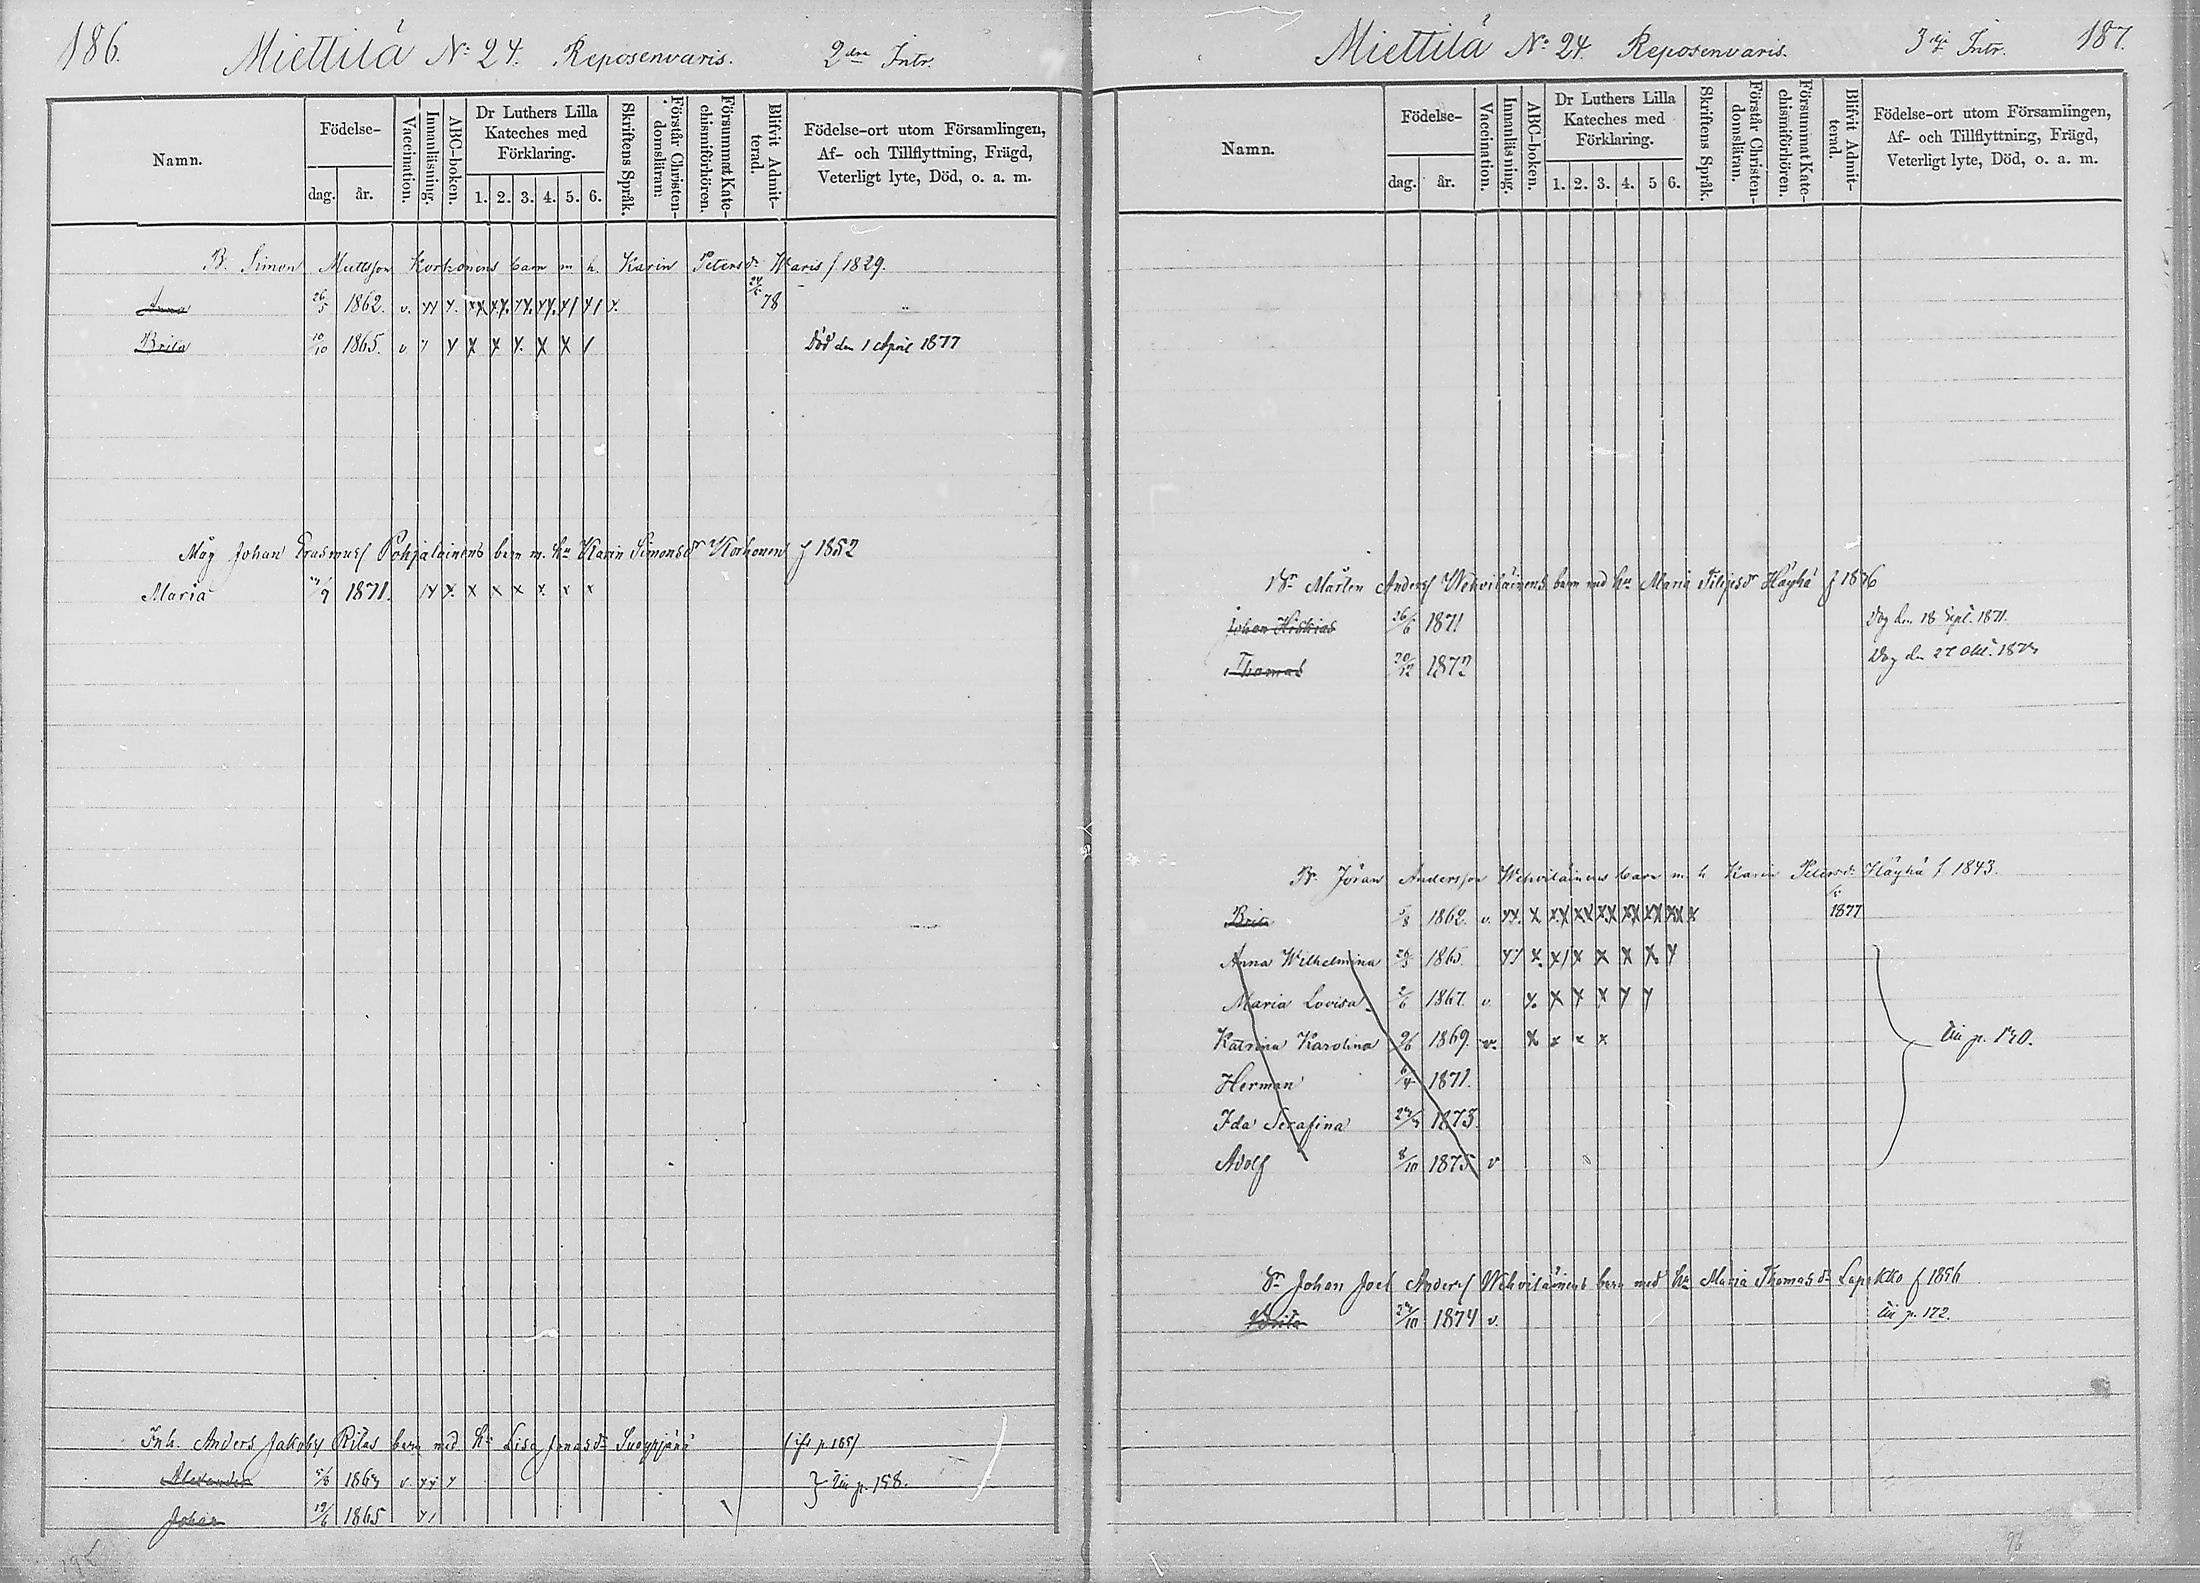 186.
Miettilä No 24. Reposenvaris. 2dra Intr.
Namn.
Födelse-
dag. år.
Vaccination.
Innanläsning.
ABC-boken.
Dr Luthers Lilla Kateches med Förklaring.
1. 2. 3. 4. 5. 6.
Skriftens Språk.
Förstår Christen-domsläran.
Försummat Kate-chismiförhören.
Blifvit Admit-terad.
Födelse-ort utom Församlingen,
Af- och Tillflyttning, Frägd,
Veterligt lyte, Död, o. a. m.
B. Simon Mattsson Korhonens barn m h. Karin Petersdr Waris f 1829.
Anna 26/5 1862. v. 78
Brita 10/10 1865. v Död den 1 April 1877
Måg Johan Erasmusf Pohjalainens barn m. hu Karin Simonsdr Korhonen f 1852
Maria 1871.
Inh. Anders Jakobsf Rilas barn med hu Lisa Jonasdr Suoypjärä
Alexander v.
Johan 19/6 1865
} Se p. 158.
Miettilä No 24. Reposenvaris. 3dje Intr. 187.
Namn.
Födelse-
dag. år.
Vaccination.
Innanläsning.
ABC-boken.
Dr Luthers Lilla Kateches med Förklaring.
1. 2. 3. 4. 5 6.
Skriftens Språk.
Förstår Christen-domsläran.
Försummat Kate-chismiförhören.
Blifvit Admit-terad.
Födelse-ort utom Församlingen,
Af- och Tillflyttning, Frägd,
Veterligt lyte, Död, o. a. m.
Br Mårten Andersf Wehviläinens barn med hu Maria Filipsdr Häyhä
Johan Hiskias 26/6 1871 Dog den 18 Sept. 1871.
Thomas 20/12 1872 Dog den 27 Okt.
Br. Jöran Andersson Wehviläinens barn m. h Karin Petersdr Häyhä f 1843.
Brita 1862. v. 1877
Anna Wilhelmina 1865.
Maria Lovisa 2/6 1867. v
Katrina Karolina 1869. v.
Herman 1871.
Ida Serafina 1873.
Adolf 8/10 1875 v
Br Johan Joel Andersf Wehviläinens barn med hu Maria Thomasdr Lapakko f 1856
Brita 1874 v. Se p. 172.
96